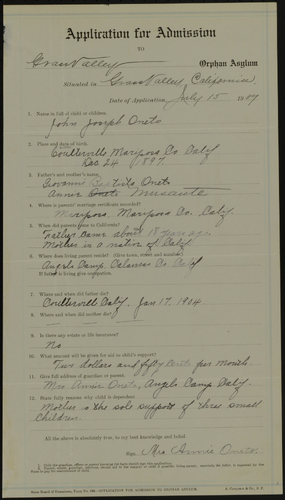 Application for Admission
TO
Grass Valley Orphan Asylum
Situated in Grass Valley, California
Date of Application, July 15 1907
1. Name in full of child or children.
John Joseph Oneto
2. Place and date of birth.
Coulterville Mariposa Co Calif
Dec 24 1897.
3. Father's and mother's name.
Giovanni Baptista Oneto
Annie Oneto
4. Where is parents' marriage certificate recorded?
Mariposa, Mariposa Co. Calif.
5. When did parents come to California?
Father came about 18 years ago
Mother is a native of Calif
6. Where does living parent reside? (Give town, street and number)
Angels Camp, Calaveras Co Calif
If father is living give occupation.
7. When and where did father die?
Coulterville Calif, Jan 17, 1904.
8. When and where did mother die?
9. Is there any estate or life insurance?
No
10. What amount will be given for aid to child's support?
Two dollars and fifty cents per month
11. Give full address of guardian or parent.
Mrs Annie Oneto, Angels Camp Calif.
12. State fully reasons why child is dependent.
Mother is the sole support of three small
children.
All the above is absolutely true, to my best knowledge and belief.
Sign Mrs Annie Oneto